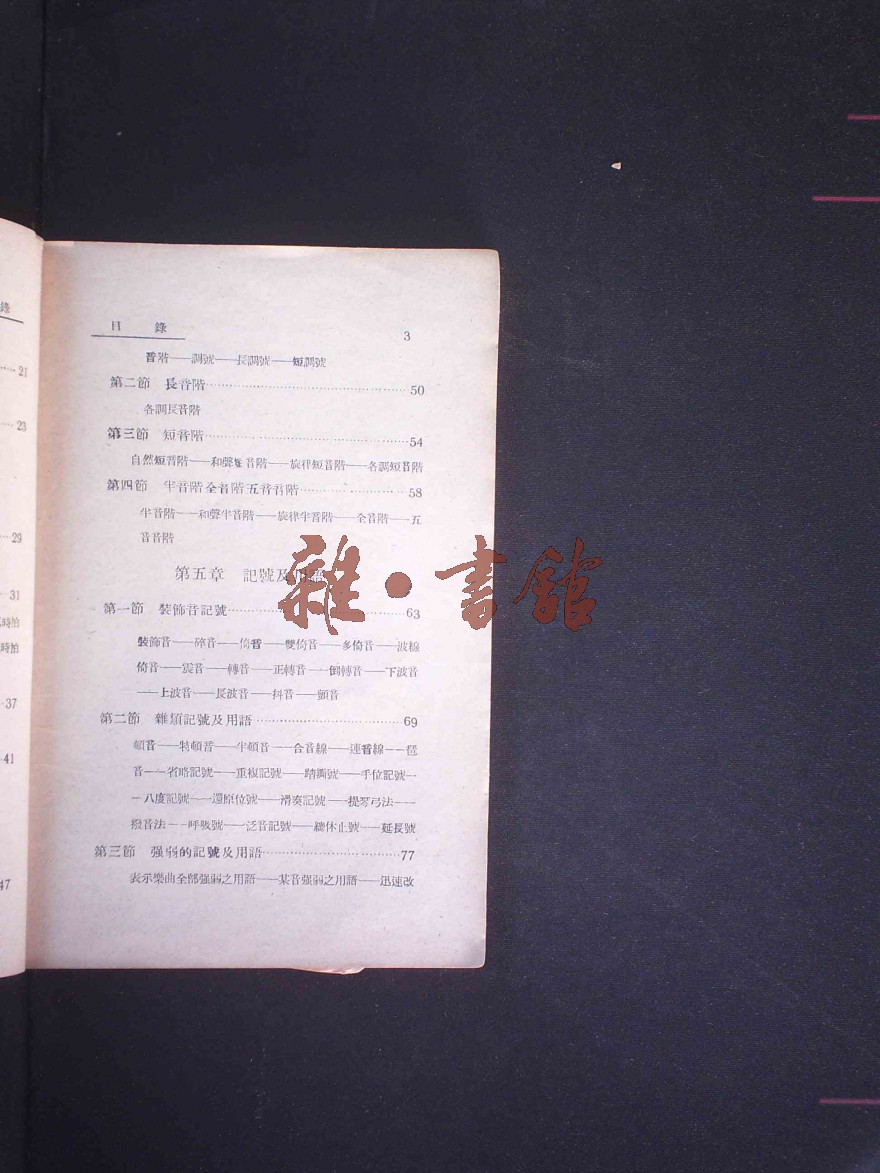 錄
21
23
29
31
時拍
時拍
37
41
47
目 錄 3
音階——調號——長調號——短調號
第二節 長音階……50
各調長音階
第三節 短音階……54
自然短音階——和聲短音階——旋律短音階——各調短音階
第四節 半音階全音階五音音階……58
半音階——和聲半音階——旋律半音階——全音階——五
音音階
第五章 記號及用語
第一節 裝飾音記號……63
裝飾音——碎音——倚音——雙倚音——多倚音——波線
倚音——震音——轉音——正轉音——倒轉音——下波音
——上波音——長波音——抖音——顫音
第二節 雜類記號及用語……69
頓音——特頓音——半頓音——合音線——連音線——琶
音——省略記號——重複記號——踏瓣號——手位記號—
—八度記號——還原位號——滑奏記號——提琴弓法——
撥音法——呼吸號——泛音記號——總休止號——延長號
第三節 强弱的記號及用語……77
表示樂曲全部强弱之用語——某音强弱之用語——迅速改
雜·書館